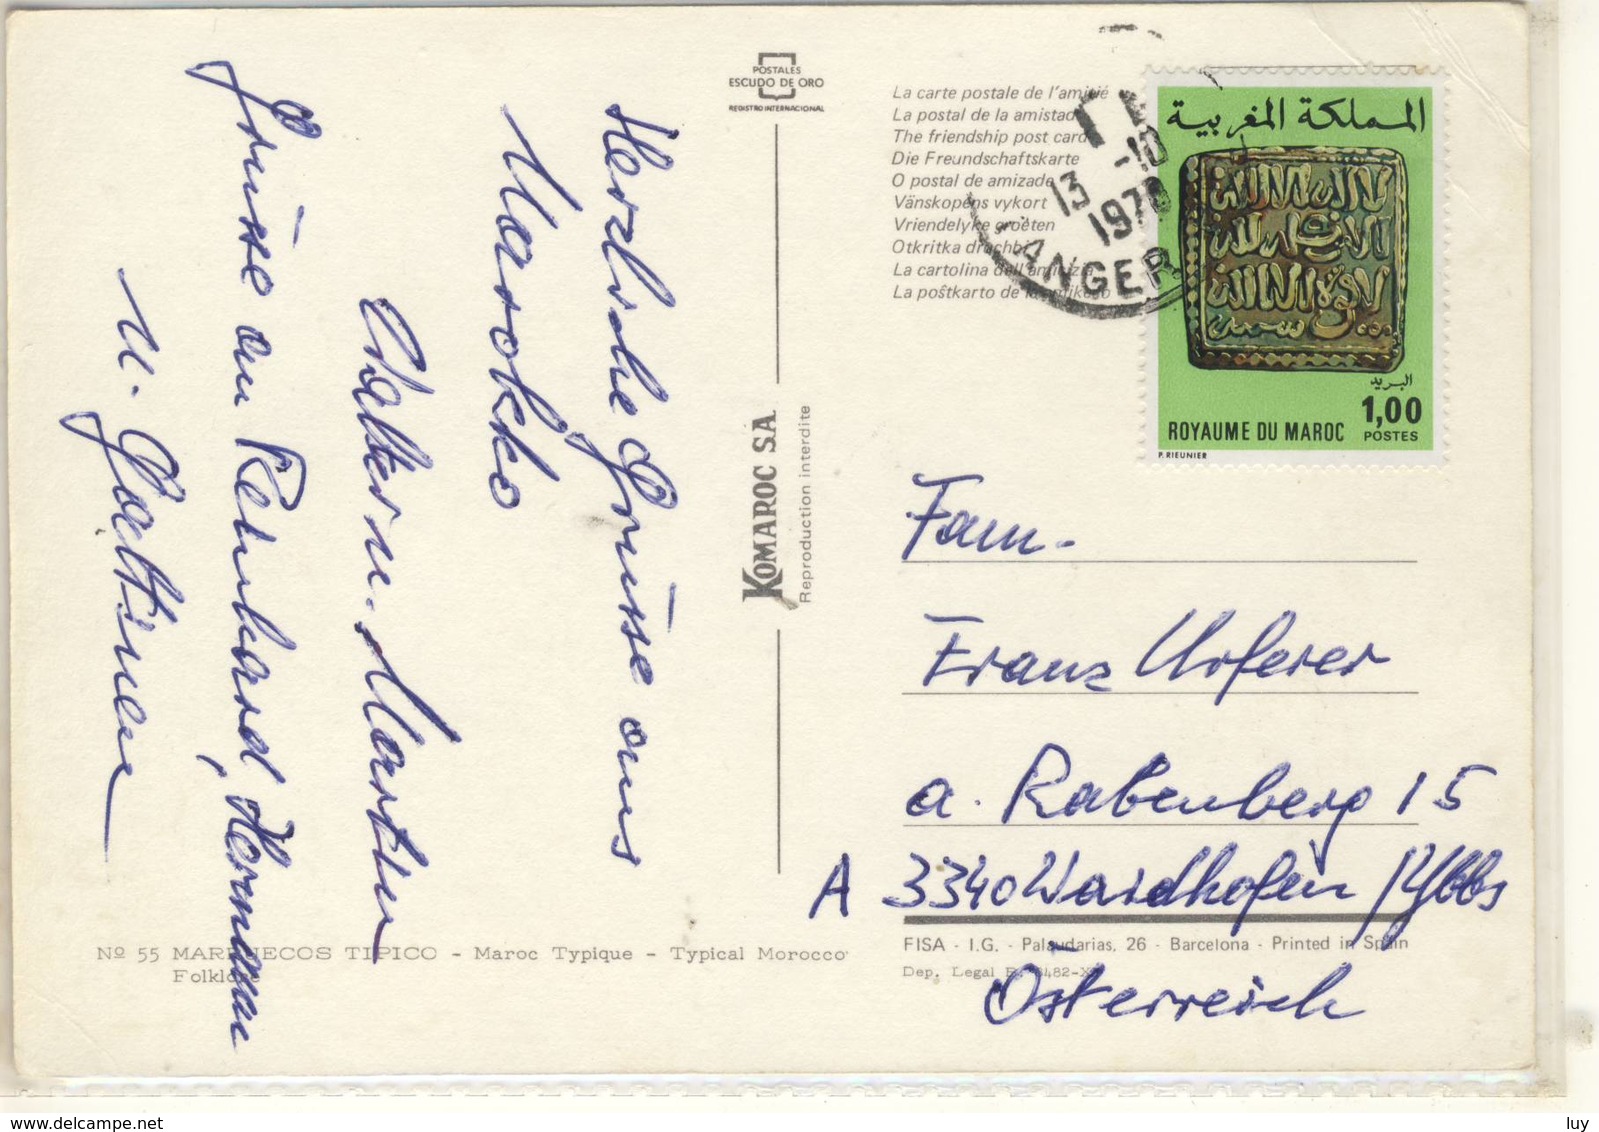 POSTALES
ESCUDO DE ORO
REGISTRO INTERNACIONAL
Herzliche Grüsse aus
Marokko
Grüsse an Reinhard, Hermann
KOMAROC S.A.
Reproduction interdite
Nº 55 MARRUECOS TIPICO - Maroc Typique - Typical Morocco
Folklore
La carte postale de l'amitié
La postal de la amistad
The friendship post card
Die Freundschaftskarte
O postal de amizade
Vänskopens vykort
Vriendelyke groeten
Otkritka druchbi
La cartolina dell'amicizia
La poŝtkarto de la amikeco
13 -10
1978
TANGER
المملكة المغربية
البريد
1,00
POSTES
ROYAUME DU MAROC
P. RIEUNIER
Fam.
Franz Urferer
a. Rabenberg 15
A 3340 Waidhofen/Ybbs
FISA - I.G. - Palaudarias, 26 - Barcelona - Printed in Spain
Dep. Legal
Österreich
luy
www.delcampe.net